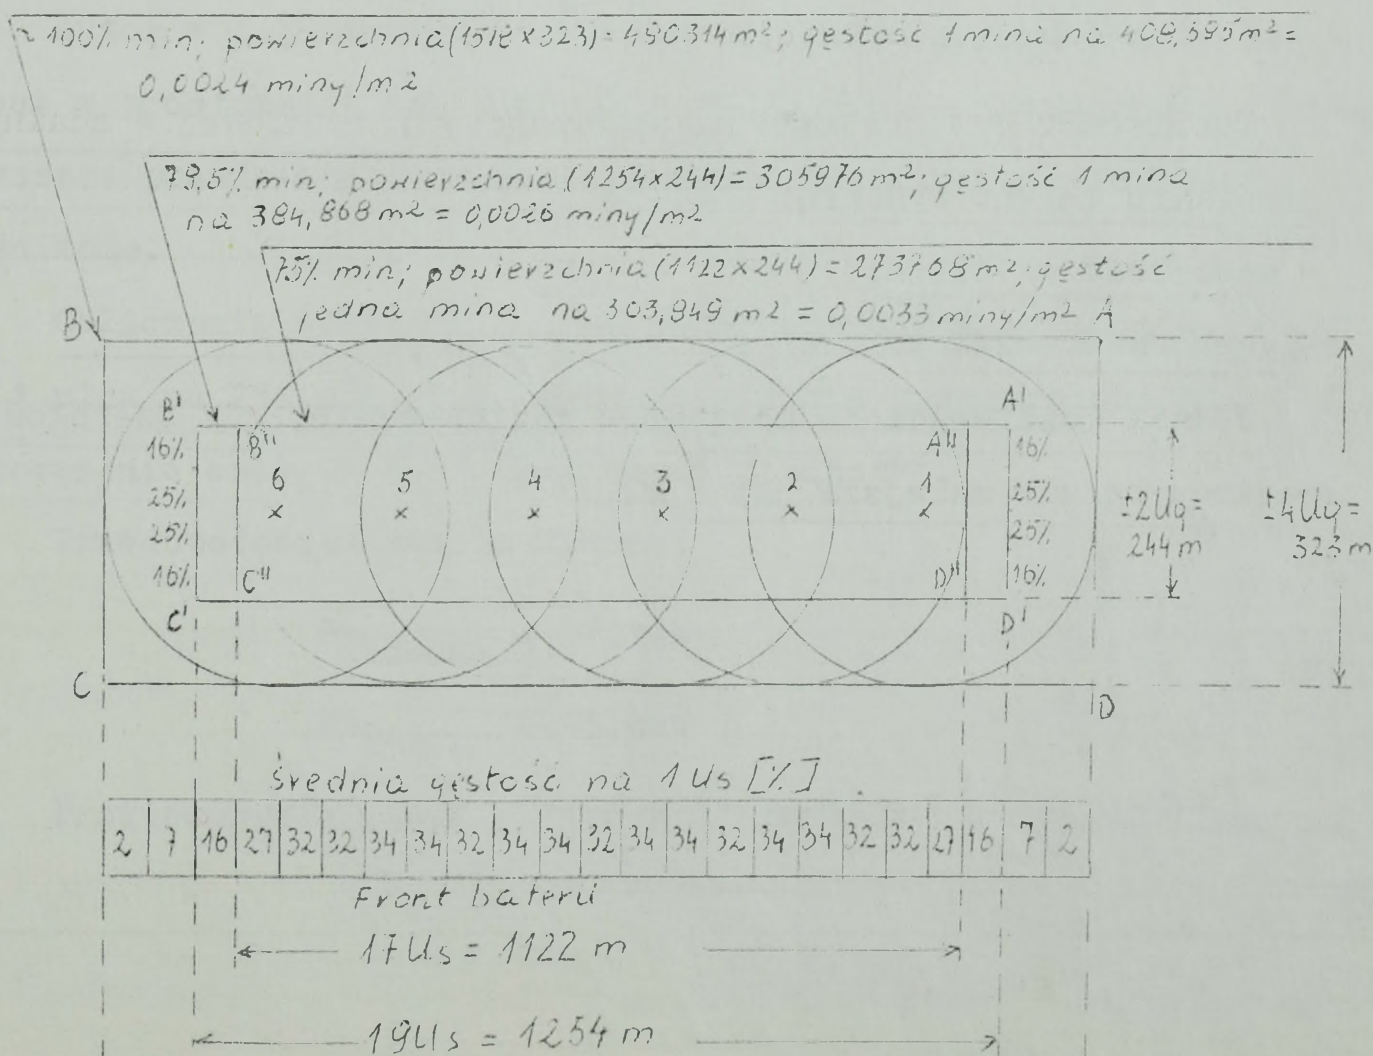 ~ 100% min; powierzchnia (1518×323) = 490314 m²; gęstość 1 mina na 408,595 m² =
0,0024 miny/m2
79,5% min; powierzchnia (1254×244) = 305976 m²; gęstość 1 mina
na 384,868 m2 = 0,0026 miny/m2
75% min; powierzchnia (1122×244) = 273768 m²; gęstość
jedna mina na 303,849 m2 = 0,0033 miny/m2 A
B
B' A'
16% B" A" 16%
6 5 4 3 2 1
25% × × × × × × 25%
±2Ug = ±4Ug =
25% 25%
244 m 323 m
16% C" D" 16%
C' D'
C D
Średnia gęstość na 1 Us [%]
2 7 16 27 32 32 34 34 32 34 34 32 34 34 32 34 34 32 32 27 16 7 2
Front baterii
17Us = 1122 m
19Us = 1254 m